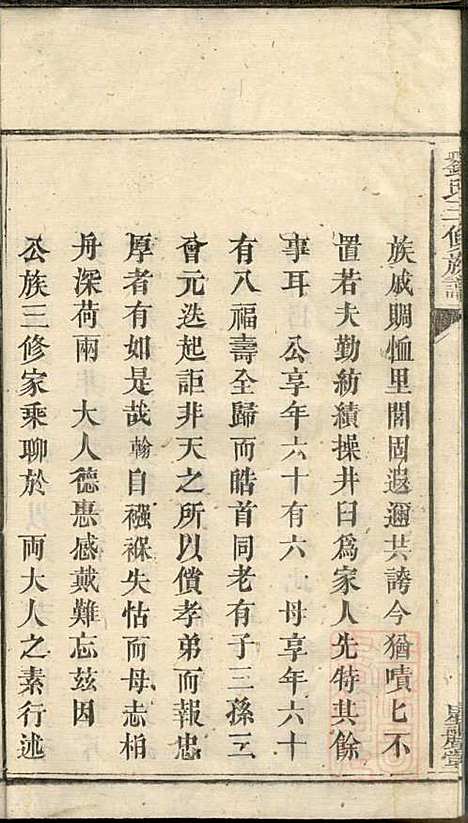 劉氏三修族譜
族戚賙恤里閭固遐邇共誇今猶嘖匕不
置若夫勤紡績操井臼為家人先特其餘
事耳　公享年六十有六　母享年六十
有八福壽全歸而皓首同老有子三孫三
會元迭起詎非天之所以償孝弟而報忠
厚者有如是哉翰自襁褓失怙而母志柏
舟深荷兩　大人德惠感戴難忘茲因
公族三修家乘聊於　兩大人之素行述